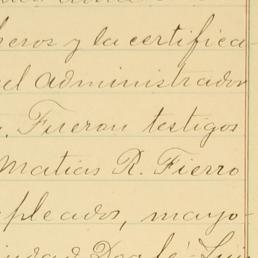 heros y la certifica-
el administrador
. Fueron testigos
Matias R. Fierro
pleados, mayo-